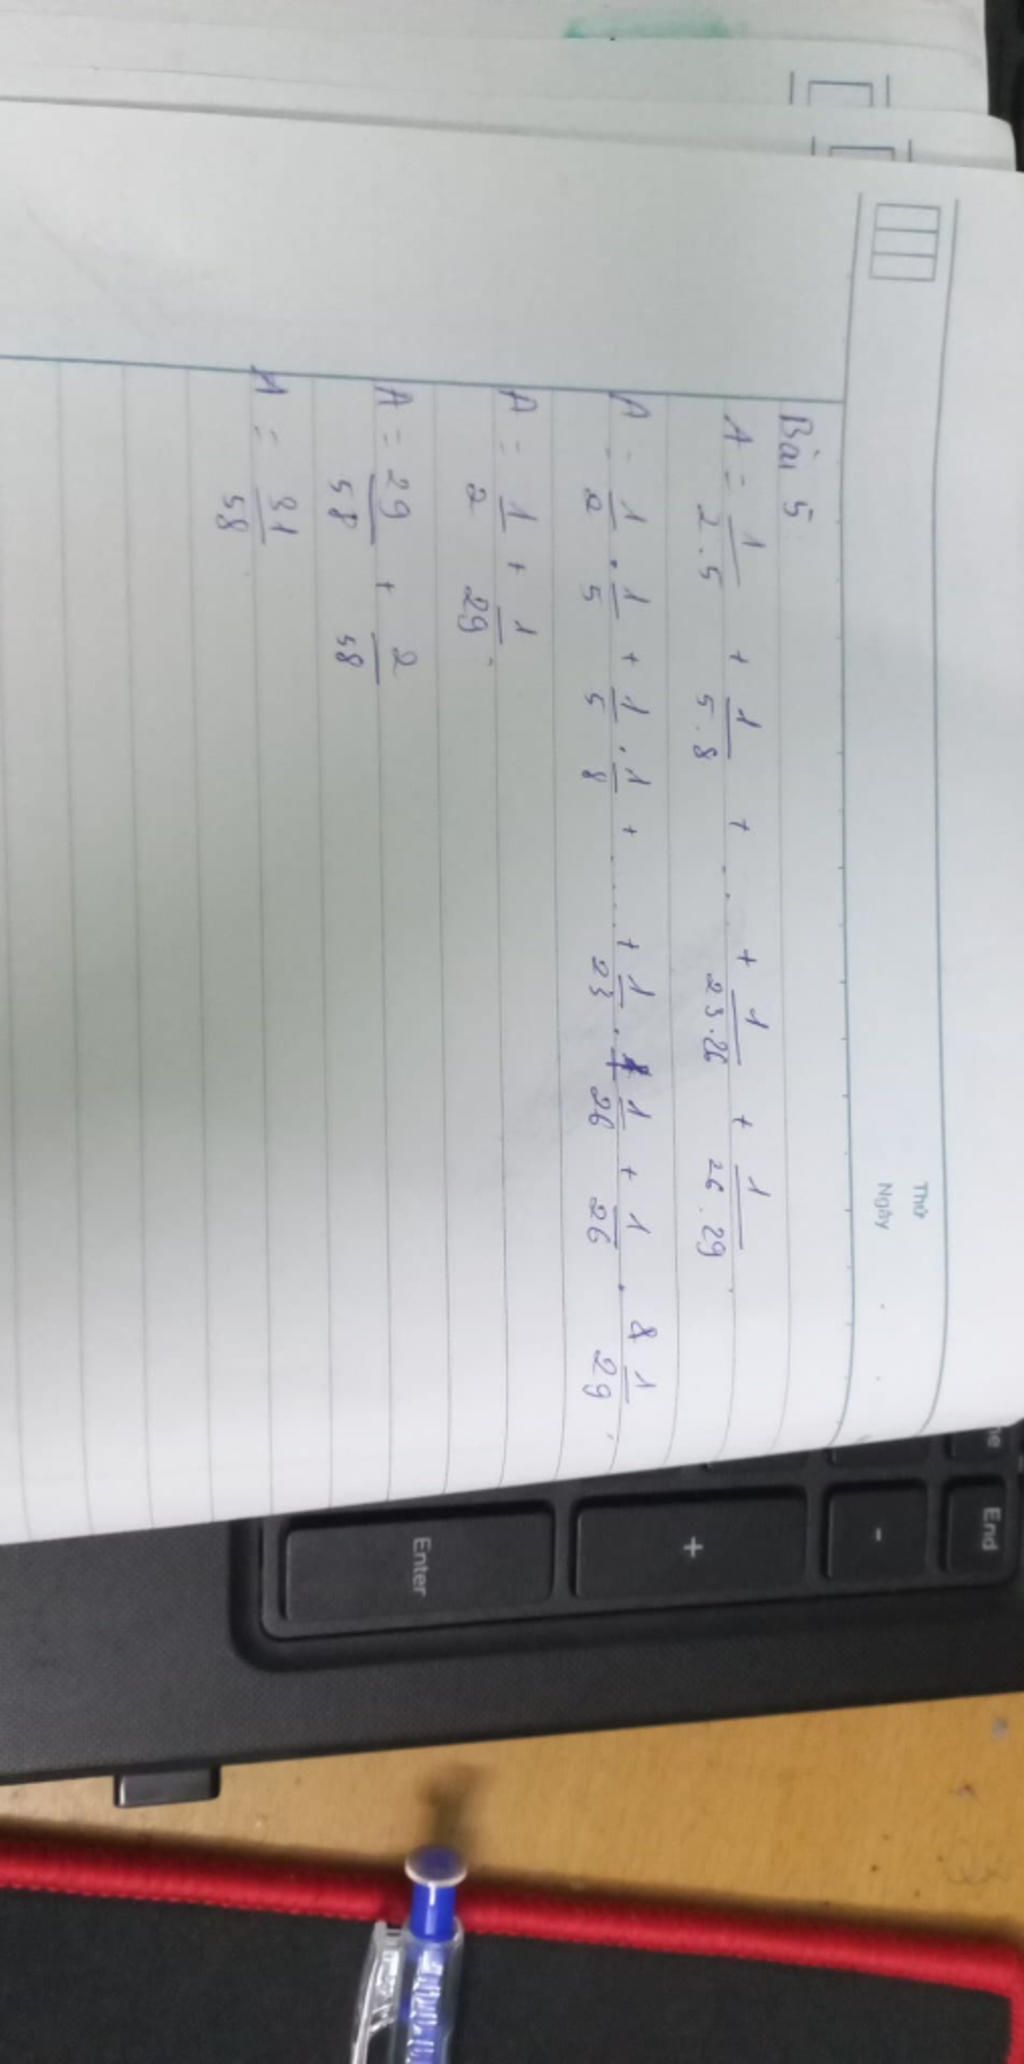 Thứ
Ngày
Bài 5
A = 1/2.5 + 1/5.8 + ... + 1/23.26 + 1/26.29
A = 1/2 . 1/5 + 1/5 . 1/8 + .... + 1/23 . 1/26 + 1/26 . 1/29
A = 1/2 + 1/29
A = 29/58 + 2/58
A = 31/58
End
-
+
Enter